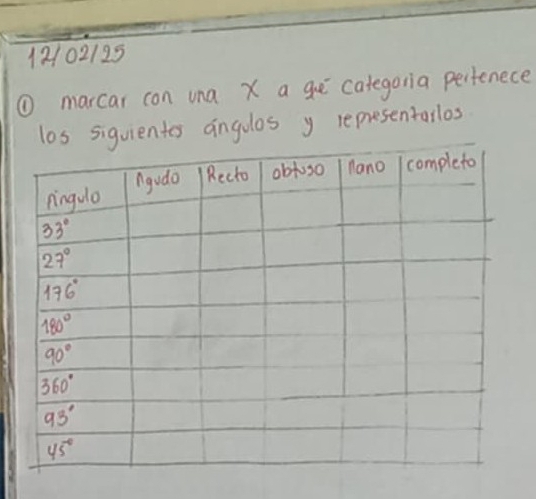 12/02/25
① marcar con una X a qué categoria pertenece
los siguientes ángulos y representarlos
Ángulo Agudo Recto obtuso llano completo
33°
27°
176°
180°
90°
360°
93°
45°